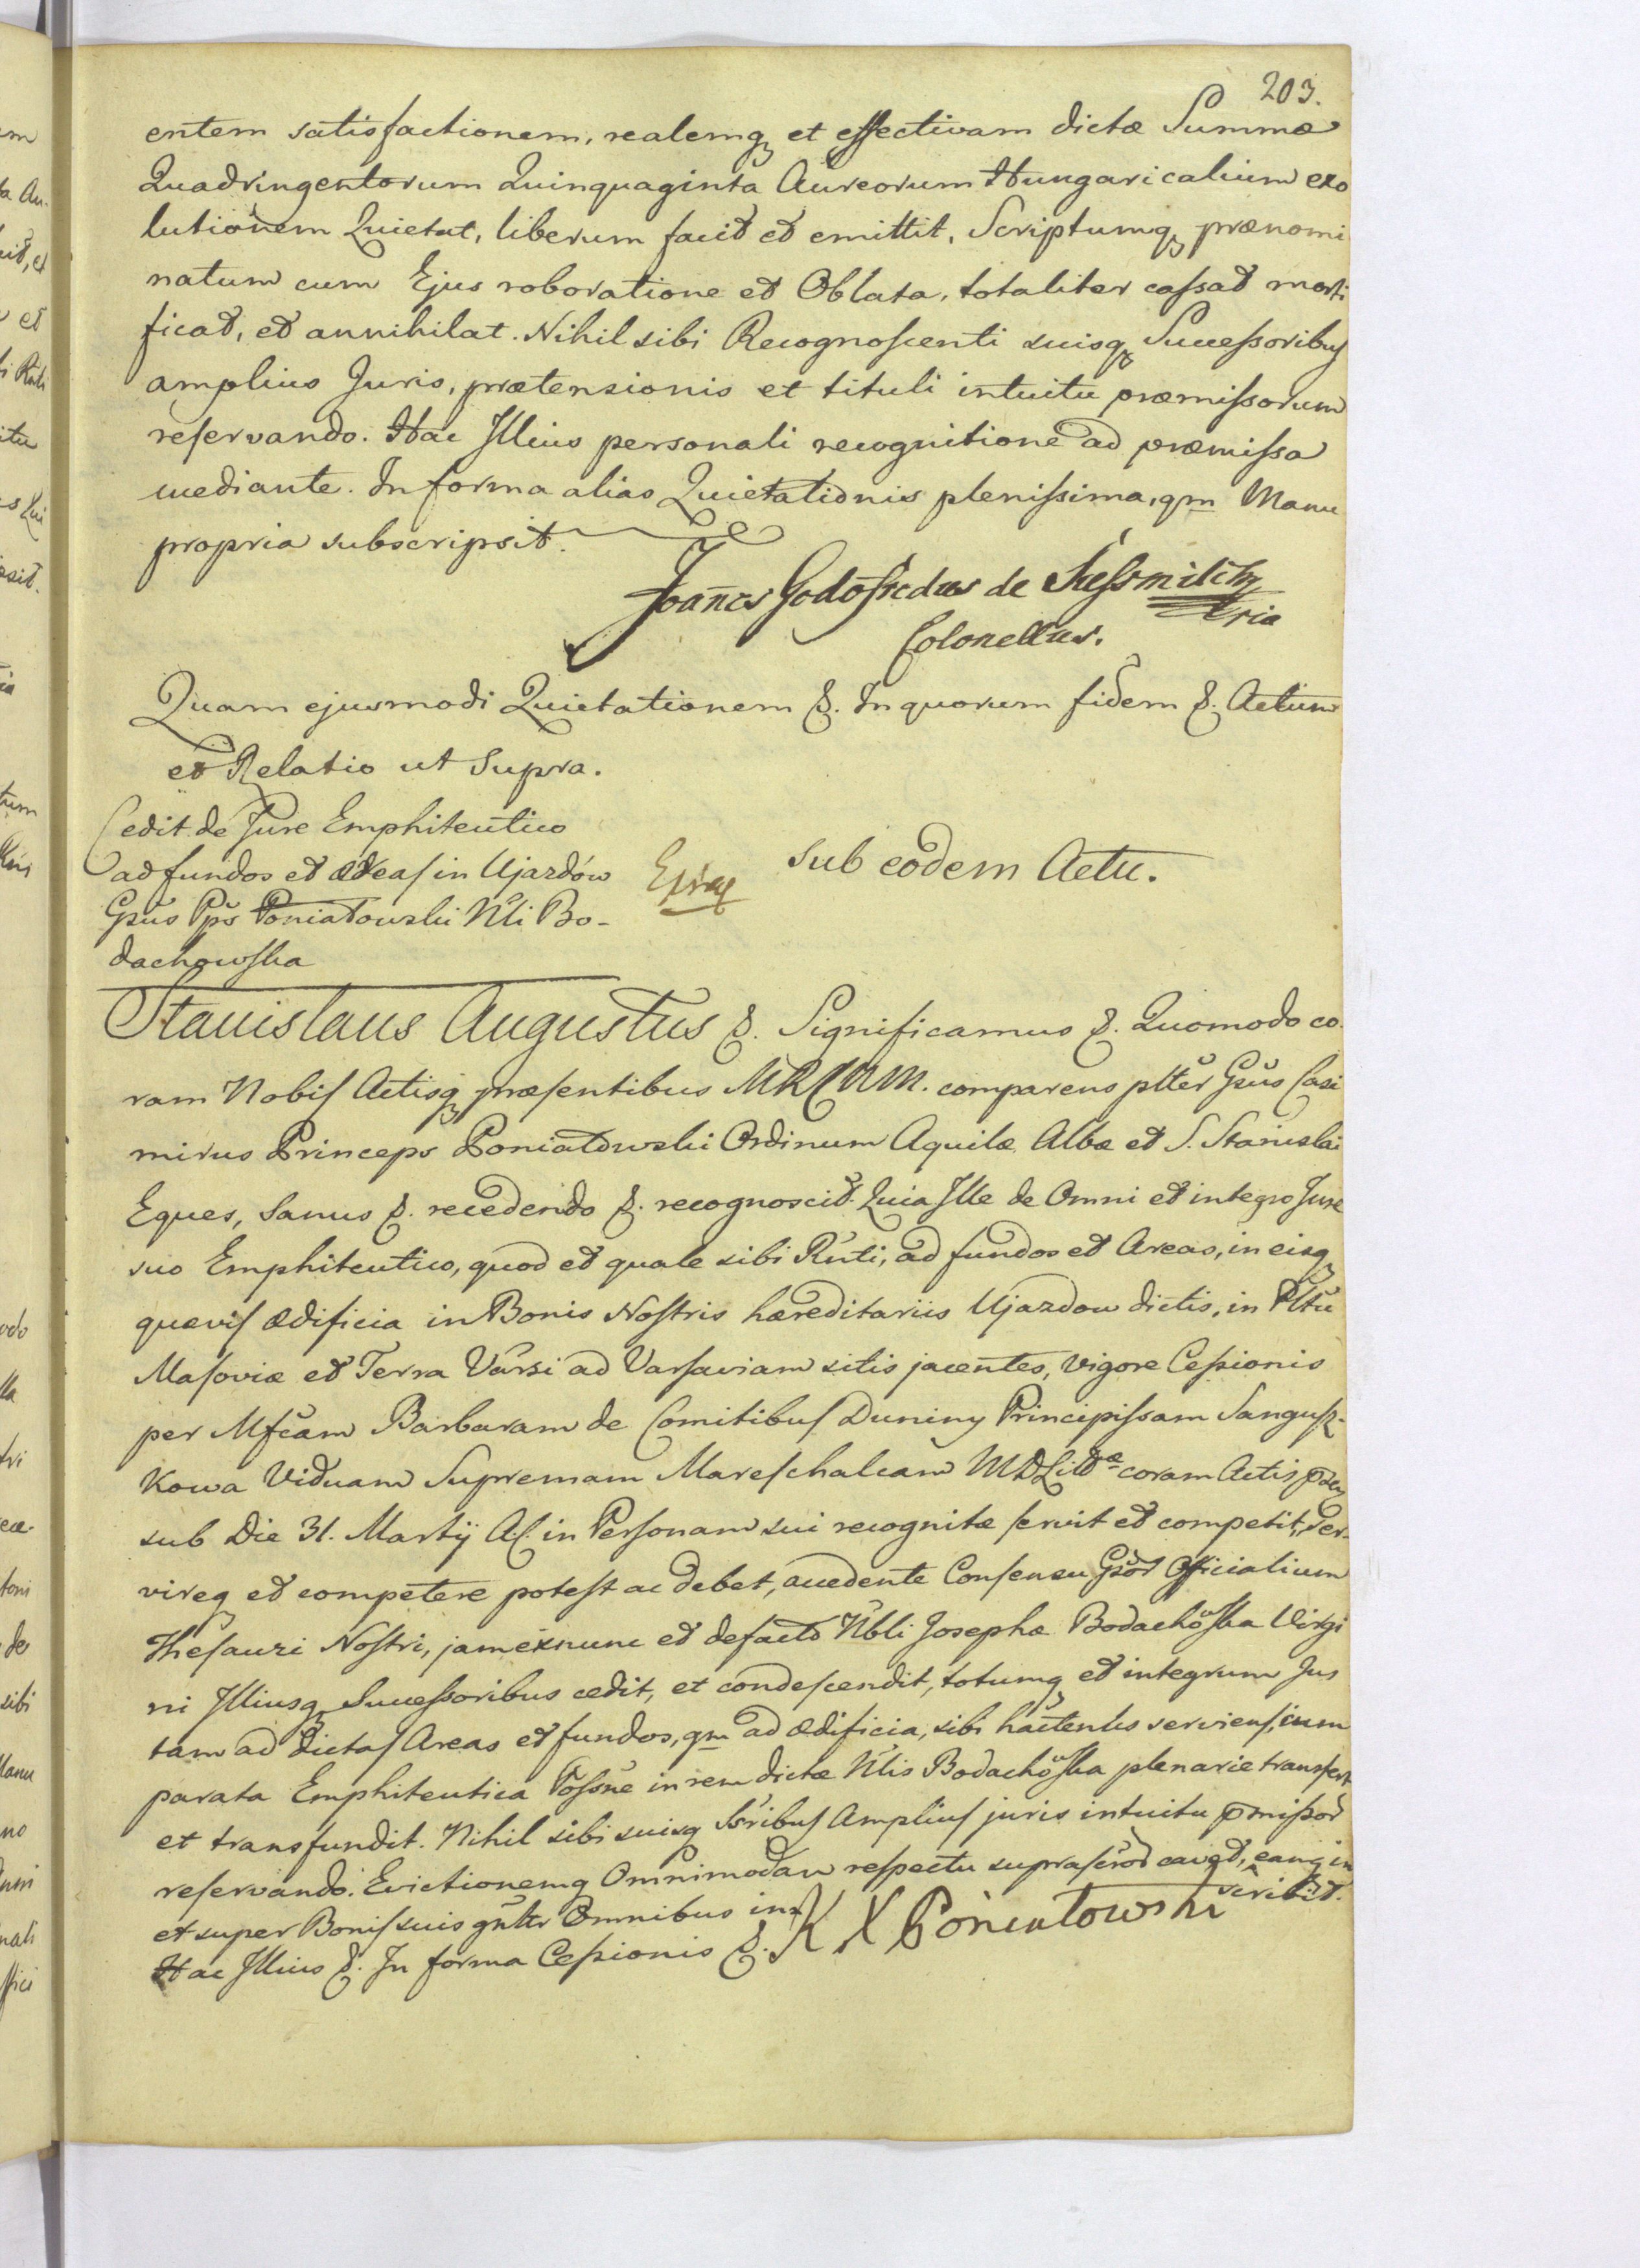 203.
entem satisfactionem, realemq₃ et effectivam dictæ Summæ
Quadringentorum Quinquaginta Aureorum Hungaricalium exo
lutionem Quietat, liberum facit et emittit, Scriptumq₃ prænomi
natum cum Ejus roboratione et Oblata, totaliter caſsat morti
ficat, et annihilat. Nihil sibi Recognoſcenti suisq₃ Succeſsoribus
amplius Juris, prætensionis et tituli intuitu præmiſsorum
reſervando. Hac Illius personali recognitione ad præmiſsa
mediante. In forma alias Quietationis pleniſsima, qm Manu
propria subscripsit.
Joañes Godofredus de
Colonellus.
Quam ejusmodi Quietationem &. In quorum fidem &. Actum
et Relatio ut Supra.
Cedit de Jure Emphiteutico
ad fundos et in Ujazdów
Gsus Pps Poniatowski Nli Bo-
dachowſka
sub eodem Actu.
Stanislaus Augustus &. Significamus &. Quomodo co
ram Nobiſ Actisq₃ præſentibus MRCNM. comparens pltter Gsus Casi
mirus Princeps Poniatowski Ordinum Aquilæ Albæ et S. Stanislai
Eques, Sanus &. recedendo &. recognoscit. Quia Ille de Omni et integro Jure
suo Emphiteutico, quod et quale sibi Rnti, ad fundos et Areas, in eisq₃
quæviſ ædificia in Bonis Noſtris hæreditariis Ujazdow dictis, in Pltu
Maſoviæ et Terra Varsi ad Varſaviam sitis jacentes, vigore Ceſsionis
per Mfcam Barbaram de Comitibuſ Duniny Principiſsam Sanguſz-
kowa Viduam Supremam Mareſchalcam MDLitt̃æ coram Actis
sub Die 31. Martÿ A.C. in Perſonam sui recognitæ ſervit et competit, ser-
vireq₃ et competere poteſt ac debet, accedente Conſensu Gsor Officialium
Theſauri Noſtri, jam exnunc et defacto Nbli Josephæ Bodachoſka Virgi
ni Illiusq₃ Succeſsoribus cedit, et condeſcendit, totumq₃ et integrum Jus
tam ad dictaſ Areas et fundos, qm ad ædificia, sibi hactenus servienſ, cum
parata Emphiteutica Poſsne in rem dictæ Nlis Bodachoſka plenarie transfert
et transfundit. Nihil sibi suisq₃ Sſribuſ Ampliuſ juris intuitu pmiſsor
reſervando. Evictionemq₃ Omnimodam reſpectu supraſcror cavet, eamq₃ in
et super Boniſ suis gnlter Omnibus ins
scribit.
Hac Illius &. In forma Ceſsionis &. K X Poniatowski